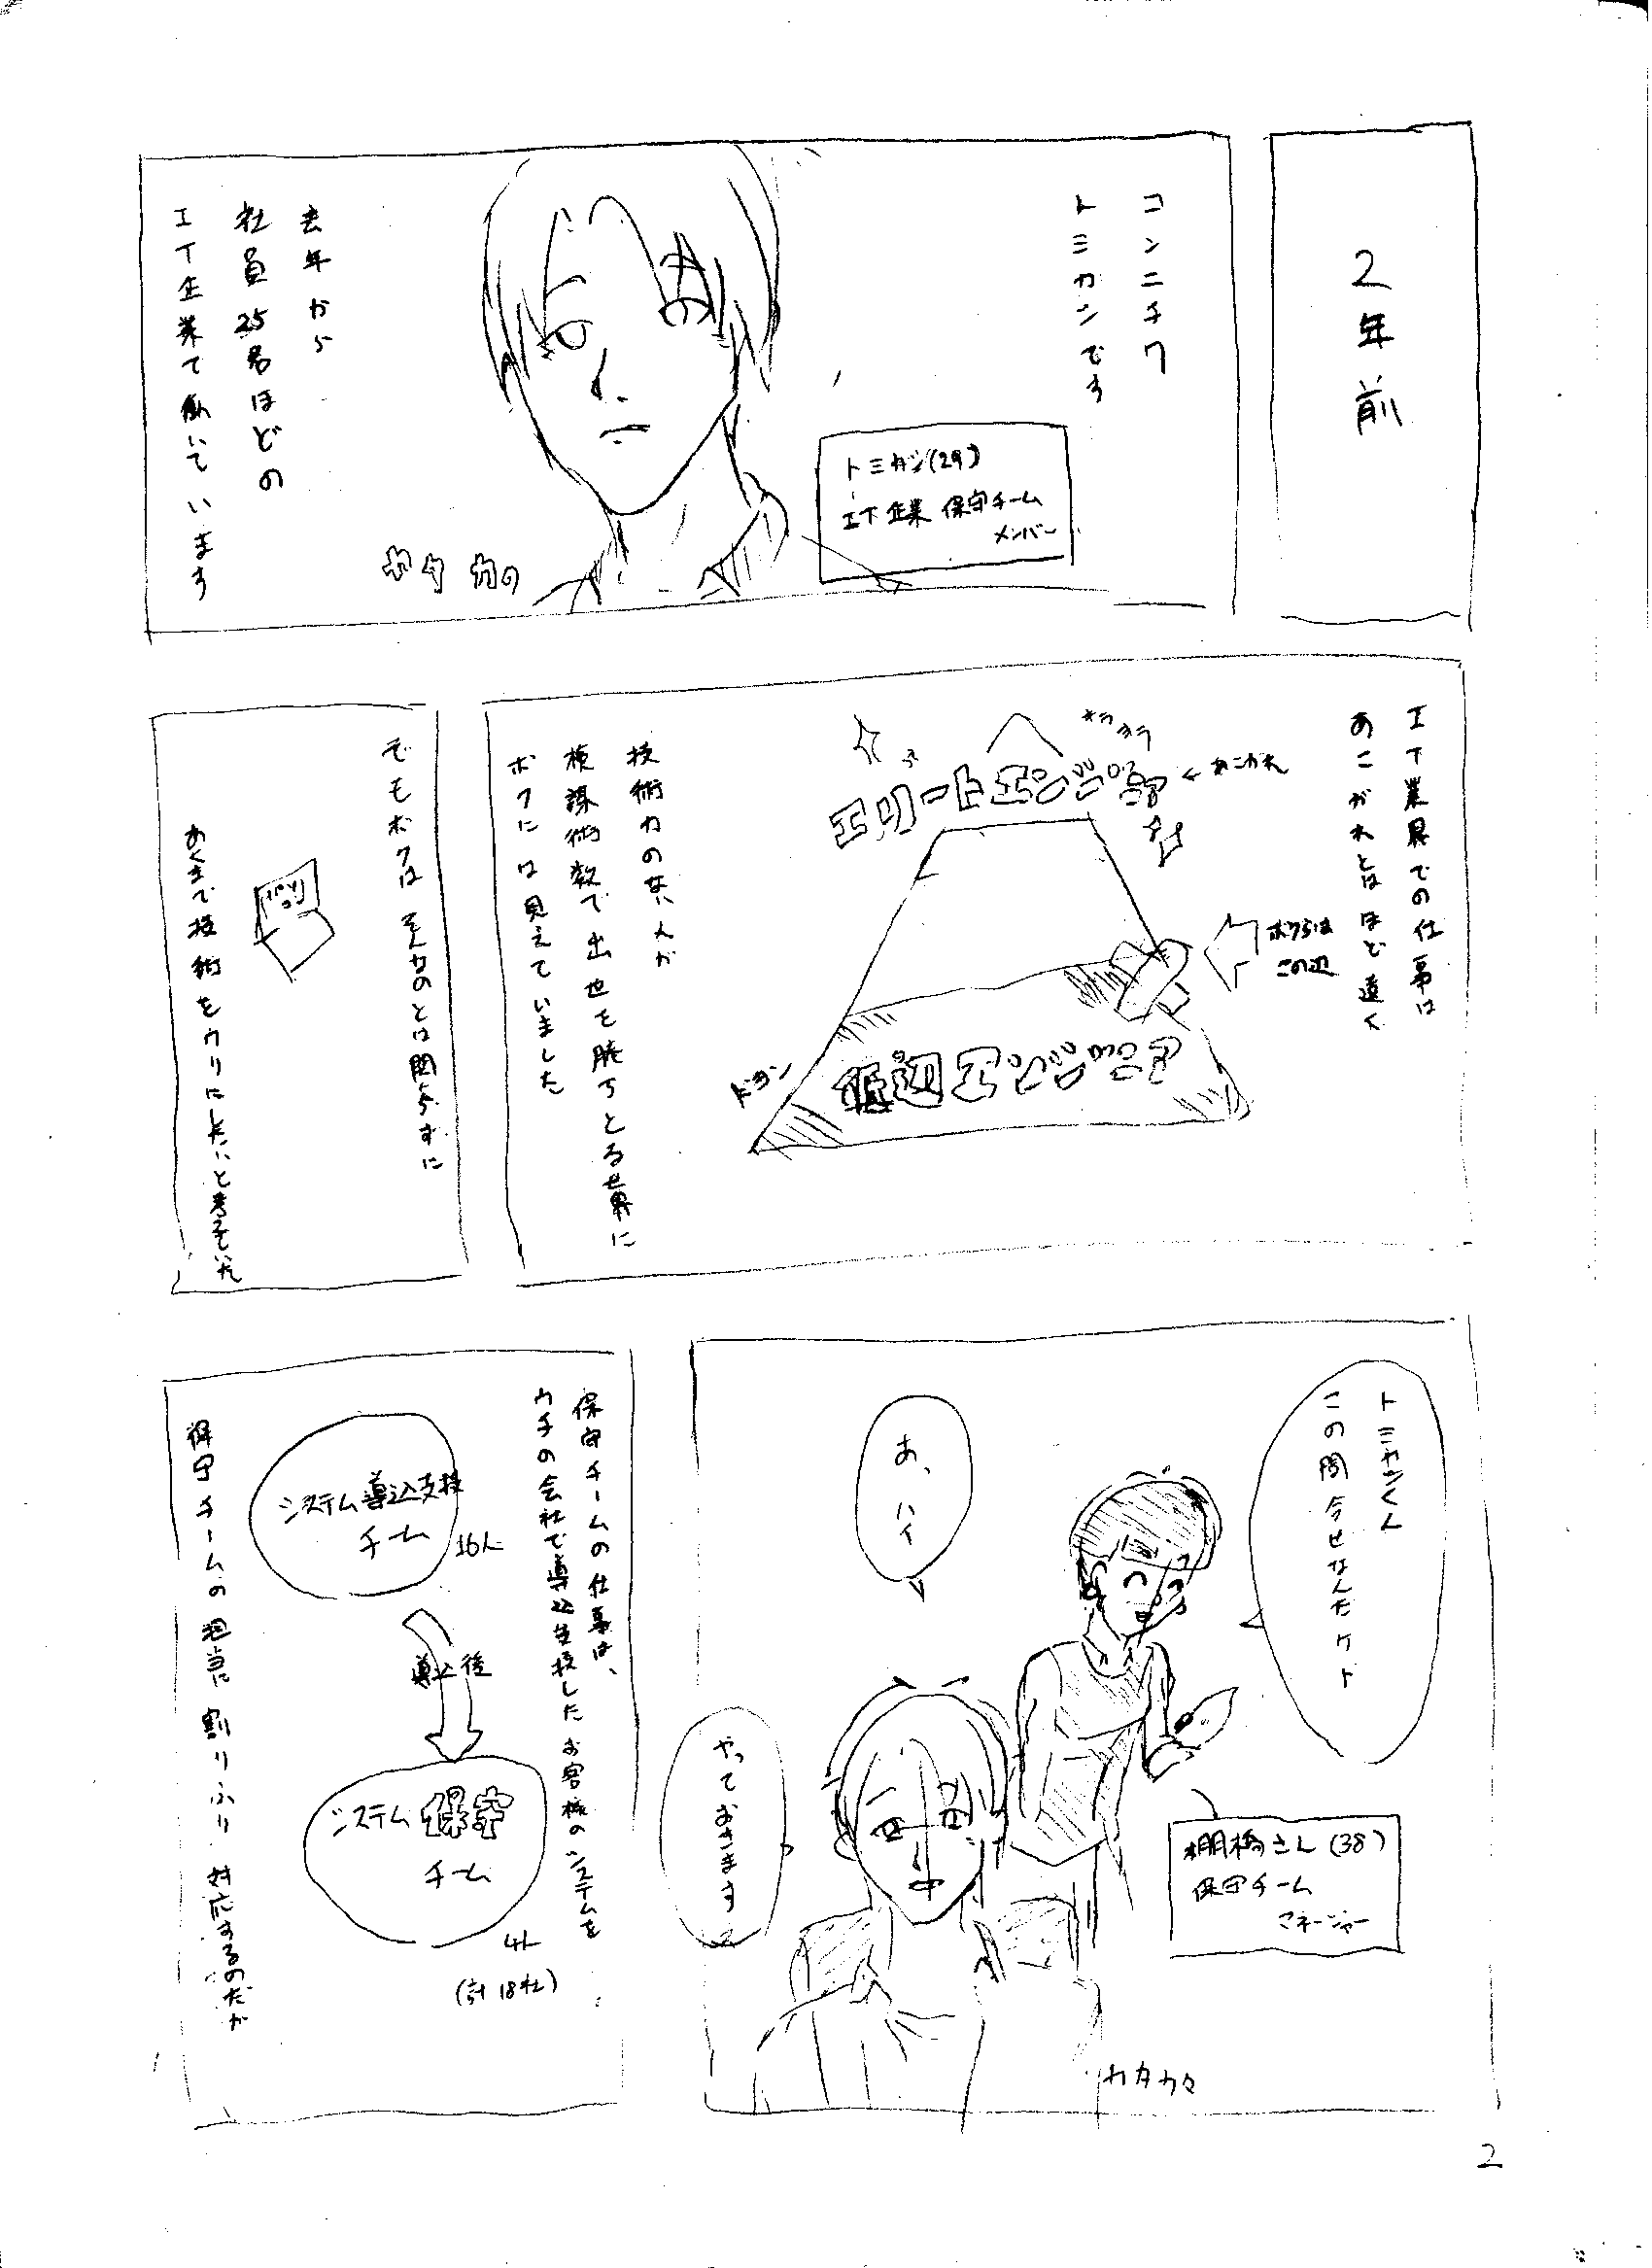 2年前
コンニチワ
トミカンです
トミカン(29)
IT企業 保守チーム
メンバー
カタカタ
去年から
社員25名ほどの
IT企業で働いています
IT業界での仕事は
あこがれとはほど遠く
キラキラ
エリートエンジニア
←あこがれ
ボクらは
この辺
底辺エンジニア
ドヨン
技術力のない人が
権謀術数で出世を勝ちとる世界に
ボクには見えていました
でもボクは そんなのとは関わらずに
パソコン
あくまで技術をウリにしたいと考えていた
トミカンくん
この問合せなんだケド
あ、ハイ
やっておきます
棚橋さん(38)
保守チーム
マネージャー
カタカタ
保守チームの仕事は、
ウチの会社で導入支援したお客様のシステムを
システム導入支援
チーム
16人
導入後
システム保守
チーム
4人
(計18社)
保守チームの担当に割りふり 対応するのだが
2